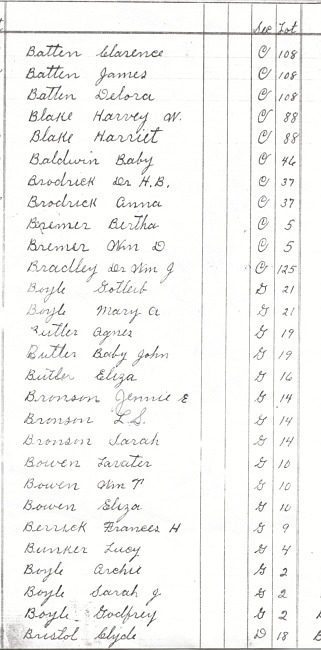 Sec Lot
Batten Clarence C 108
Batten James C 108
Batten Delora C 108
Blake Harvey W. C 88
Blake Harriet C 88
Baldwin Baby C 46
Brodrick Dr H.B. C 37
Brodrick Anna C 37
Bremer Bertha C 5
Bremer Wm D C 5
Bradley Dr Wm J C 125
Boyle Gotleib G 21
Boyle Mary A G 21
Butler Agnes G 19
Butler Baby John G 19
Butler Eliza G 16
Bronson Jennie E G 14
Bronson L.S. G 14
Bronson Sarah G 14
Bowen Lavater G 10
Bowen Wm T G 10
Bowen Eliza G 10
Berrick Frances H G 9
Bunker Lucy G 4
Boyle Archie G 2
Boyle Sarah J G 2
Boyle Godfrey G 2
Bristol Clyde D 18